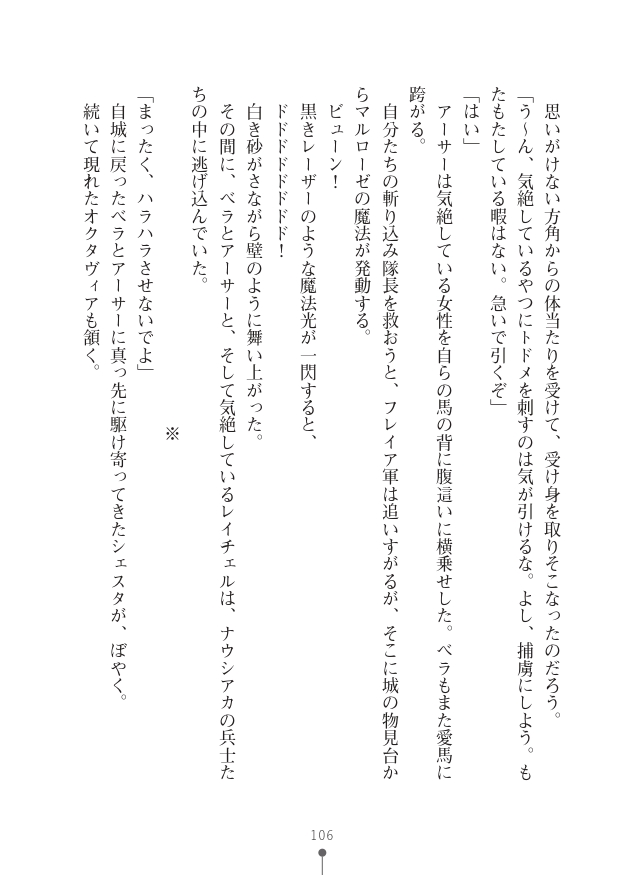 思いがけない方角からの体当たりを受けて、受け身を取りそこなったのだろう。
「う～ん、気絶しているやつにトドメを刺すのは気が引けるな。よし、捕虜にしよう。も
たもたしている暇はない。急いで引くぞ」
「はい」
アーサーは気絶している女性を自らの馬の背に腹這いに横乗せした。ベラもまた愛馬に
跨がる。
自分たちの斬り込み隊長を救おうと、フレイア軍は追いすがるが、そこに城の物見台か
らマルローゼの魔法が発動する。
ビューン！
黒きレーザーのような魔法光が一閃すると、
ドドドドドドドド！
白き砂がさながら壁のように舞い上がった。
その間に、ベラとアーサーと、そして気絶しているレイチェルは、ナウシアカの兵士た
ちの中に逃げ込んでいた。
※
「まったく、ハラハラさせないでよ」
自城に戻ったベラとアーサーに真っ先に駆け寄ってきたシェスタが、ぼやく。
続いて現れたオクタヴィアも頷く。
106